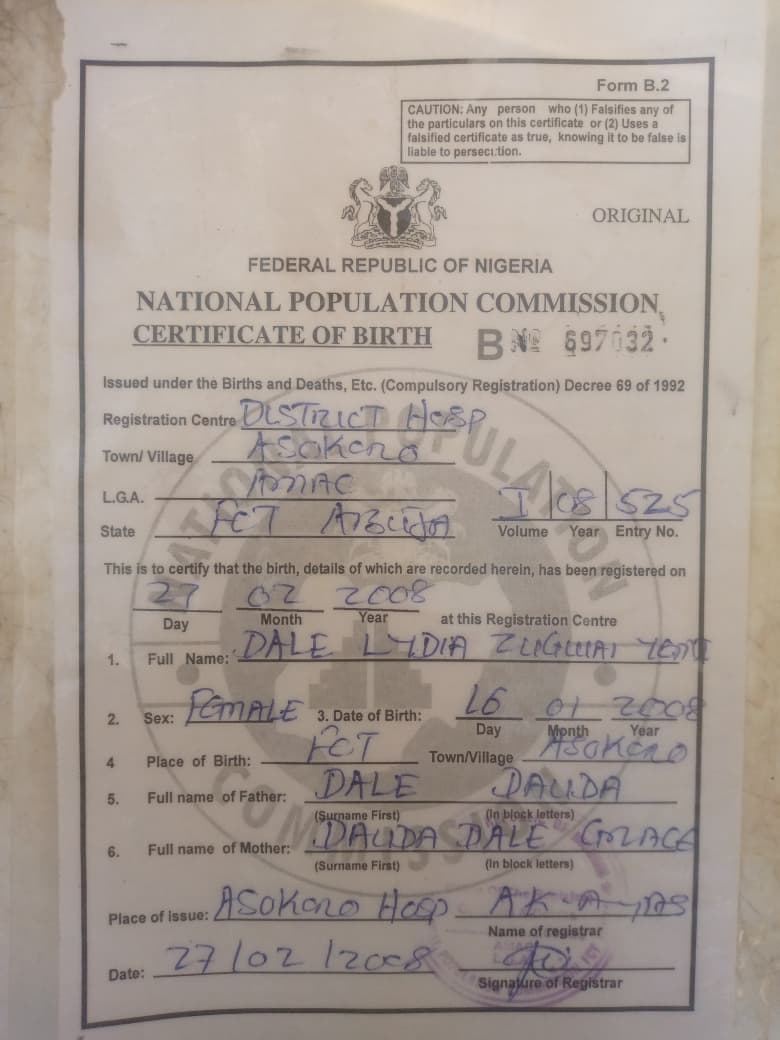 Form B.2
CAUTION: Any person who (1) Falsifies any of
the particulars on this certificate or (2) Uses a
falsified certificate as true, knowing it to be false is
liable to persecution.
ORIGINAL
FEDERAL REPUBLIC OF NIGERIA
NATIONAL POPULATION COMMISSION,
CERTIFICATE OF BIRTH B No 697032
Issued under the Births and Deaths, Etc. (Compulsory Registration) Decree 69 of 1992
Registration Centre DISTRICT HOSP
Town/ Village ASOKORO
L.G.A. AMAC
State FCT ABUJA
I 08 525
Volume Year Entry No.
This is to certify that the birth, details of which are recorded herein, has been registered on
27 02 2008
Day Month Year at this Registration Centre
1. Full Name: DALE LYDIA
2. Sex: FEMALE 3. Date of Birth: 16 01 2008
Day Month Year
4 Place of Birth: FCT Town/Village ASOKORO
5. Full name of Father: DALE DAUDA
(Surname First) (In block letters)
6. Full name of Mother: DAUDA DALE GRACE
(Surname First) (In block letters)
Place of issue: ASOKORO HOSP
Name of registrar
Date: 27/02/2008
Signature of Registrar
NATIONAL POPULATION
COMMISSION